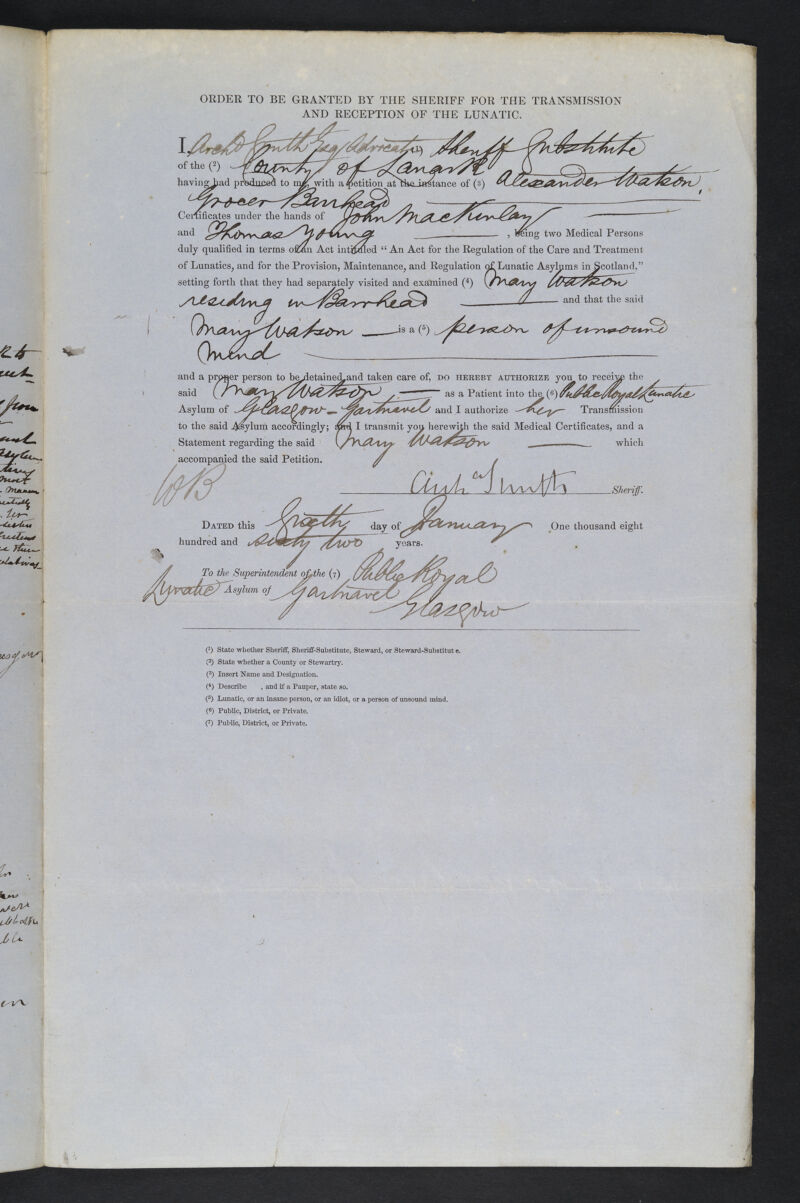 ORDER TO BE GRANTED BY THE SHERIFF FOR THE TRANSMISSION
AND RECEPTION OF THE LUNATIC.
I, Archd Smith Esq Advocate (1) Sheriff Substitute
of the (2) County of Lanark
having had produced to me, with a petition at the instance of (3) Alexander Watson,
Grocer Barrhead
Certificates under the hands of John MacKinlay
and Thomas Young , being two Medical Persons
duly qualified in terms of an Act intituled "An Act for the Regulation of the Care and Treatment
of Lunatics, and for the Provision, Maintenance, and Regulation of Lunatic Asylums in Scotland,"
setting forth that they had separately visited and examined (4) Mary Watson
residing in Barrhead and that the said
Mary Watson is a (5) person of unsound
Mind
and a proper person to be detained and taken care of, DO HEREBY AUTHORIZE you to receive the
said Mary Watson as a Patient into the (6) Public Royal Lunatic
Asylum of Glasgow - Gartnavel and I authorize her Transmission
to the said Asylum accordingly; and I transmit you herewith the said Medical Certificates, and a
Statement regarding the said Mary Watson which
accompanied the said Petition.
WB
Archd Smith Sheriff.
DATED this Sixth day of January One thousand eight
hundred and sixty two years.
To the Superintendent of the (7) Public Royal
Lunatic Asylum of Gartnavel
Glasgow
(1) State whether Sheriff, Sheriff-Substitute, Steward, or Steward-Substitute.
(2) State whether a County or Stewartry.
(3) Insert Name and Designation.
(4) Describe , and if a Pauper, state so.
(5) Lunatic, or an insane person, or an idiot, or a person of unsound mind.
(6) Public, District, or Private.
(7) Public, District, or Private.